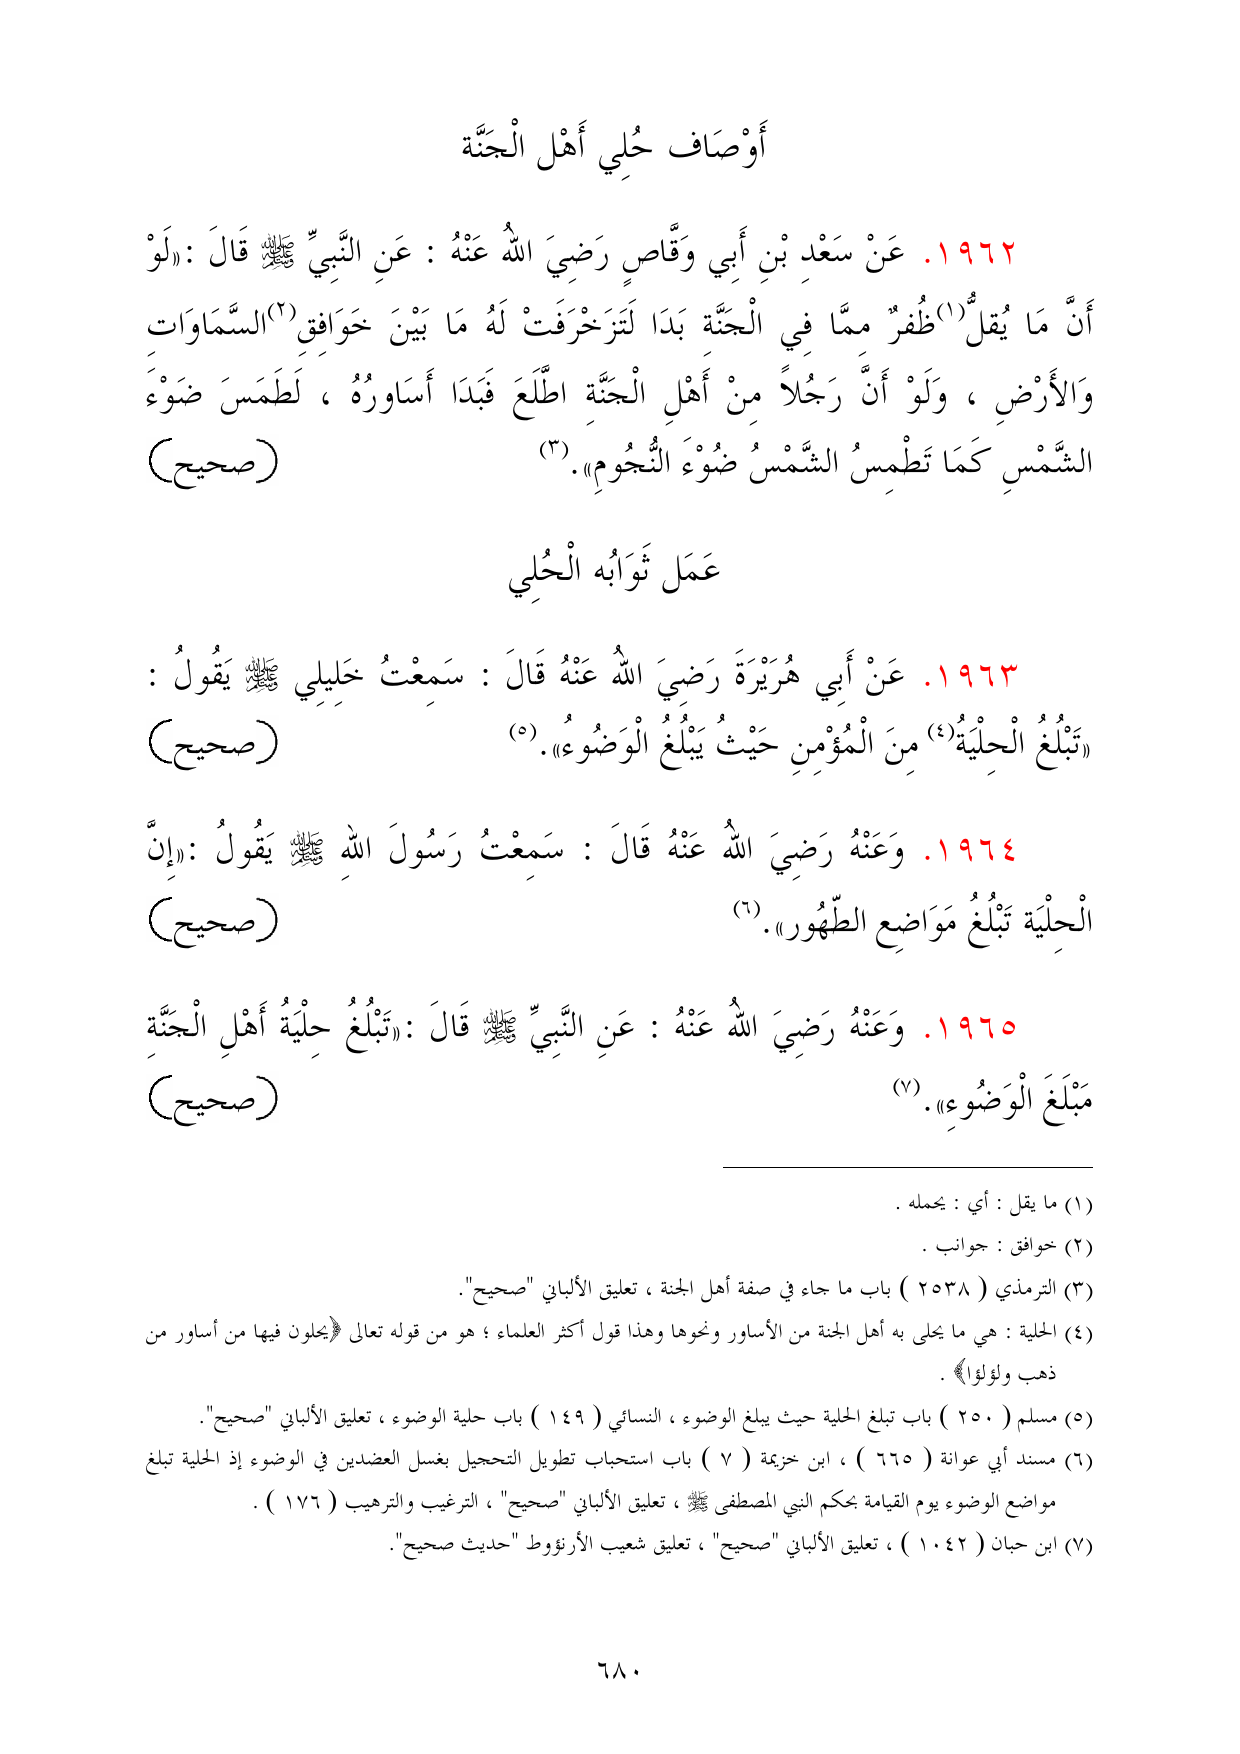 أَوْصَاف حُلِي أَهْل الْجَنَّة
١٩٦٢. عَنْ سَعْدِ بْنِ أَبِي وَقَّاصٍ رَضِيَ اللهُ عَنْهُ : عَنِ النَّبِيِّ ﷺ قَالَ :«لَوْ
أَنَّ مَا يُقلُّ(١)ظُفرٌ مِمَّا فِي الْجَنَّةِ بَدَا لَتَزَخْرَفَتْ لَهُ مَا بَيْنَ خَوَافِقِ(٢)السَّمَاوَاتِ
وَالأَرْضِ ، وَلَوْ أَنَّ رَجُلاً مِنْ أَهْلِ الْجَنَّةِ اطَّلَعَ فَبَدَا أَسَاورُهُ ، لَطَمَسَ ضَوْءَ
الشَّمْسِ كَمَا تَطْمِسُ الشَّمْسُ ضُوْءَ النُّجُومِ».(٣) (صحيح)
عَمَل ثَوَابُه الْحُلِي
١٩٦٣. عَنْ أَبِي هُرَيْرَةَ رَضِيَ اللهُ عَنْهُ قَالَ : سَمِعْتُ خَلِيلِي ﷺ يَقُولُ :
«تَبْلُغُ الْحِلْيَةُ(٤) مِنَ الْمُؤْمِنِ حَيْثُ يَبْلُغُ الْوَضُوءُ».(٥) (صحيح)
١٩٦٤. وَعَنْهُ رَضِيَ اللهُ عَنْهُ قَالَ : سَمِعْتُ رَسُولَ اللهِ ﷺ يَقُولُ :«إِنَّ
الْحِلْيَة تَبْلُغُ مَوَاضِع الطّهُور».(٦) (صحيح)
١٩٦٥. وَعَنْهُ رَضِيَ اللهُ عَنْهُ : عَنِ النَّبِيِّ ﷺ قَالَ :«تَبْلُغُ حِلْيَةُ أَهْلِ الْجَنَّةِ
مَبْلَغَ الْوَضُوءِ».(٧) (صحيح)
(١) ما يقل : أي : يحمله .
(٢) خوافق : جوانب .
(٣) الترمذي ( ٢٥٣٨ ) باب ما جاء في صفة أهل الجنة ، تعليق الألباني "صحيح".
(٤) الحلية : هي ما يحلى به أهل الجنة من الأساور ونحوها وهذا قول أكثر العلماء ؛ هو من قوله تعالى ﴿يحلون فيها من أساور من
ذهب ولؤلؤا﴾ .
(٥) مسلم ( ٢٥٠ ) باب تبلغ الحلية حيث يبلغ الوضوء ، النسائي ( ١٤٩ ) باب حلية الوضوء ، تعليق الألباني "صحيح".
(٦) مسند أبي عوانة ( ٦٦٥ ) ، ابن خزيمة ( ٧ ) باب استحباب تطويل التحجيل بغسل العضدين في الوضوء إذ الحلية تبلغ
مواضع الوضوء يوم القيامة بحكم النبي المصطفى ﷺ ، تعليق الألباني "صحيح" ، الترغيب والترهيب ( ١٧٦ ) .
(٧) ابن حبان ( ١٠٤٢ ) ، تعليق الألباني "صحيح" ، تعليق شعيب الأرنؤوط "حديث صحيح".
٦٨٠